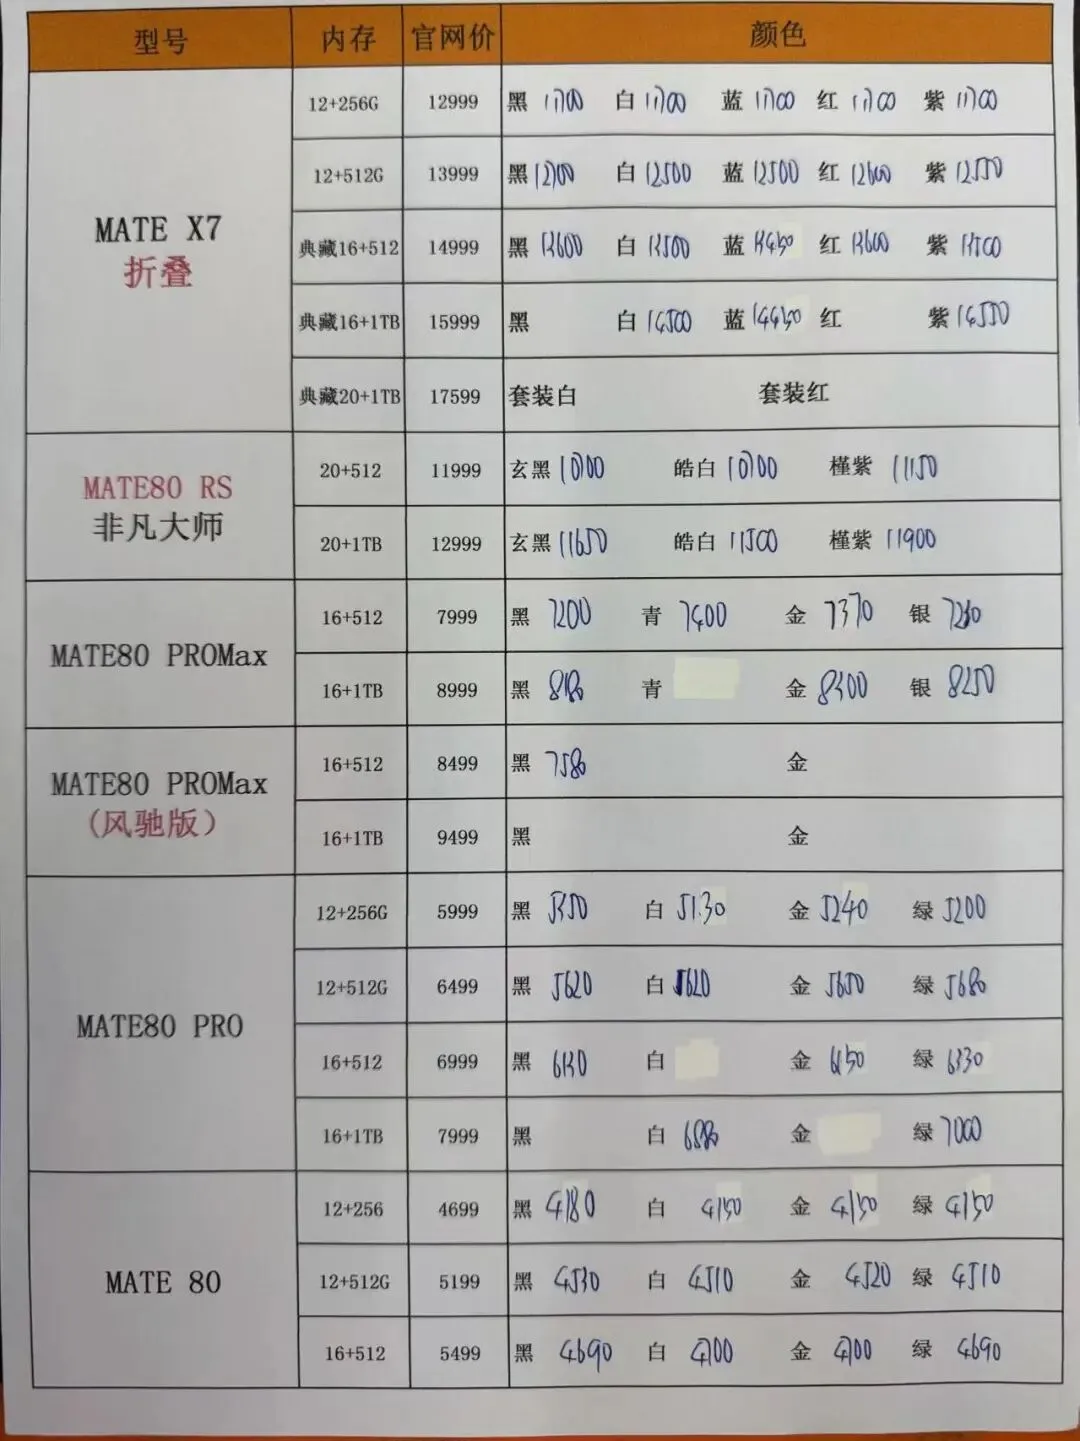 型号 内存 官网价 颜色
MATE X7
折叠
12+256G 12999 黑 11700 白 11700 蓝 11700 红 11700 紫 11700
12+512G 13999 黑 12700 白 12500 蓝 12500 红 12600 紫 12550
典藏16+512 14999 黑 13600 白 13500 蓝 13450 红 13600 紫 13500
典藏16+1TB 15999 黑 白 14500 蓝 14450 红 紫 14550
典藏20+1TB 17599 套装白 套装红
MATE80 RS
非凡大师
20+512 11999 玄黑 10700 皓白 10700 槿紫 11150
20+1TB 12999 玄黑 11650 皓白 11500 槿紫 11900
MATE80 PROMax
16+512 7999 黑 7200 青 7400 金 7370 银
16+1TB 8999 黑 青 金 8300 银 8250
MATE80 PROMax
(风驰版)
16+512 8499 黑 7580 金
16+1TB 9499 黑 金
MATE80 PRO
12+256G 5999 黑 白 5130 金 5240 绿 5200
12+512G 6499 黑 5620 白 5620 金 5650 绿 5680
16+512 6999 黑 白 金 绿 6330
16+1TB 7999 黑 白 金 绿 7000
MATE 80
12+256 4699 黑 4180 白 4150 金 4150 绿 4150
12+512G 5199 黑 4530 白 4510 金 4520 绿 4510
16+512 5499 黑 4690 白 4700 金 4700 绿 4690